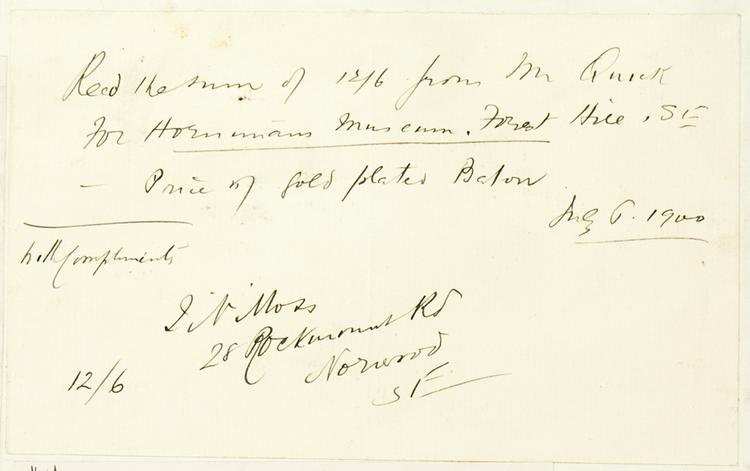 Recd the sum of 12/6 from Mr Quick
for Hornimans Museum. Forest Hill. SE
— Price of gold plated Baton
July 6. 1900
With Compliments
Moss
28 Rockmount Rd
Norwood
SE
12/6